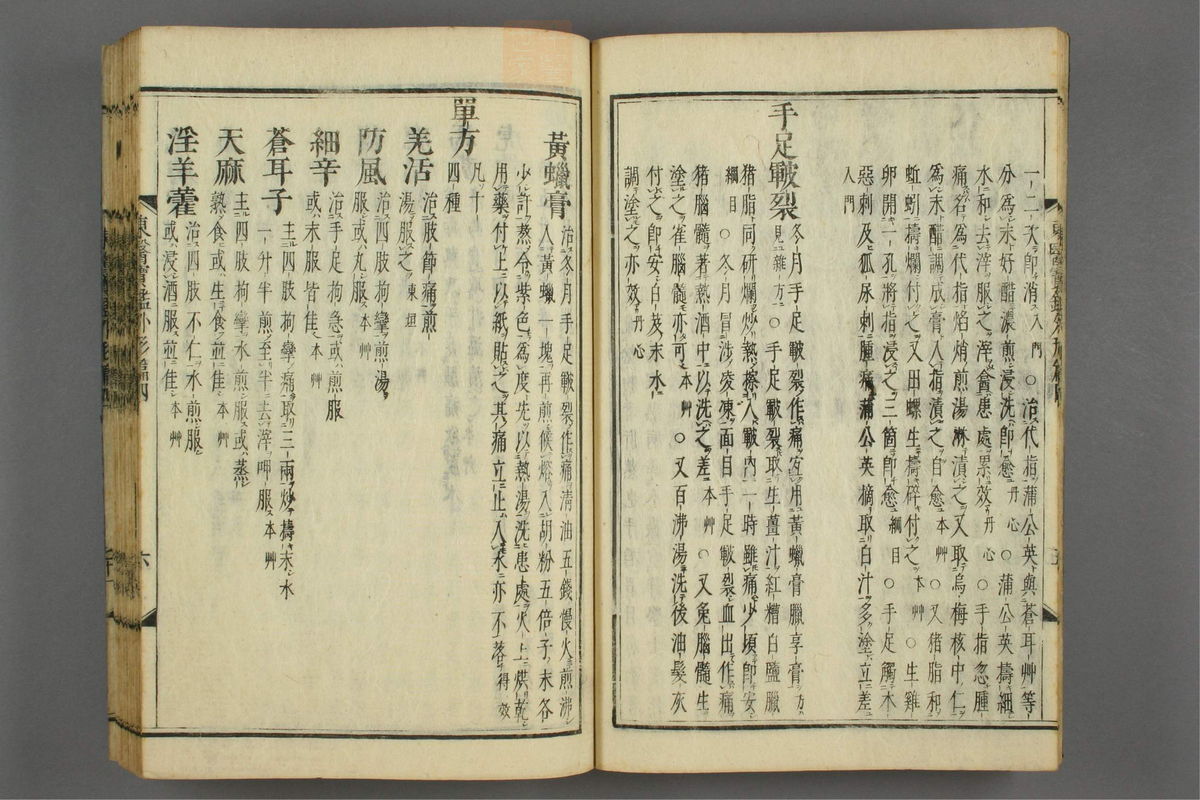 一二次即消入門○治代指蒲公英與蒼耳艸等
分爲末好醋濃煎浸洗即愈丹心○蒲公英擣細
水和去滓服之滓罯患處累效丹心○手指忽腫
痛名爲代指焰焇煎湯淋漬之又取烏梅核中仁
爲末醋調成膏入指漬之自愈本艸○又猪脂和
蚯蚓擣爛付之又田螺生擣碎付之本艸○生雞
卵開一孔將指浸之三箇即愈綱目○手足觸木
惡刺及狐尿刺腫痛蒲公英摘取白汁多塗立差
入門
手足皸裂冬月手足皸裂作痛宜用黃蠟膏臘享膏方
見雜方○手足皸裂取生薑汁紅糟白鹽臘
猪脂同研爛炒熱擦入皸內一時雖痛少頃即安
綱目○冬月冒涉凌凍面目手足皸裂血出作痛
猪腦髓著熱酒中以洗之差本艸○又兔腦髓生
塗之雀腦髓亦可本艸○又百沸湯洗後油髮灰
付之即安白芨末水
調塗之亦效丹心
黃蠟膏治冬月手足皸裂作痛清油五錢慢火煎沸
入黃蠟一塊再煎候熔入胡粉五倍子末各
少許熬令紫色爲度先以熱湯洗患處火上烘乾
用藥付上以紙貼之其痛立止入水亦不落得效
單方凡十
四種
羌活治肢節痛煎
湯服之東垣
防風治四肢拘攣煎湯
服或丸服本艸
細辛治手足拘急或煎服
或末服皆佳本艸
蒼耳子主四肢拘攣痛取三兩炒擣末水
一升半煎至半去滓呷服本艸
天麻主四肢拘攣水煎服或蒸
熟食或生食並佳本艸
淫羊藿治四肢不仁水煎服
或浸酒服並佳本艸
東醫寶鑑外形篇四
六